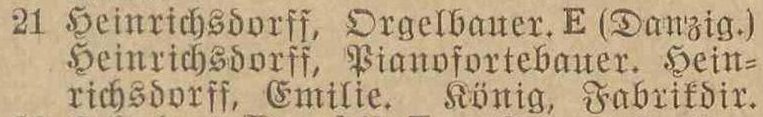 21 Heinrichsdorff, Orgelbauer. E (Danzig.)
Heinrichsdorff, Pianofortebauer. Hein=
richsdorff, Emilie. König, Fabrikdir.